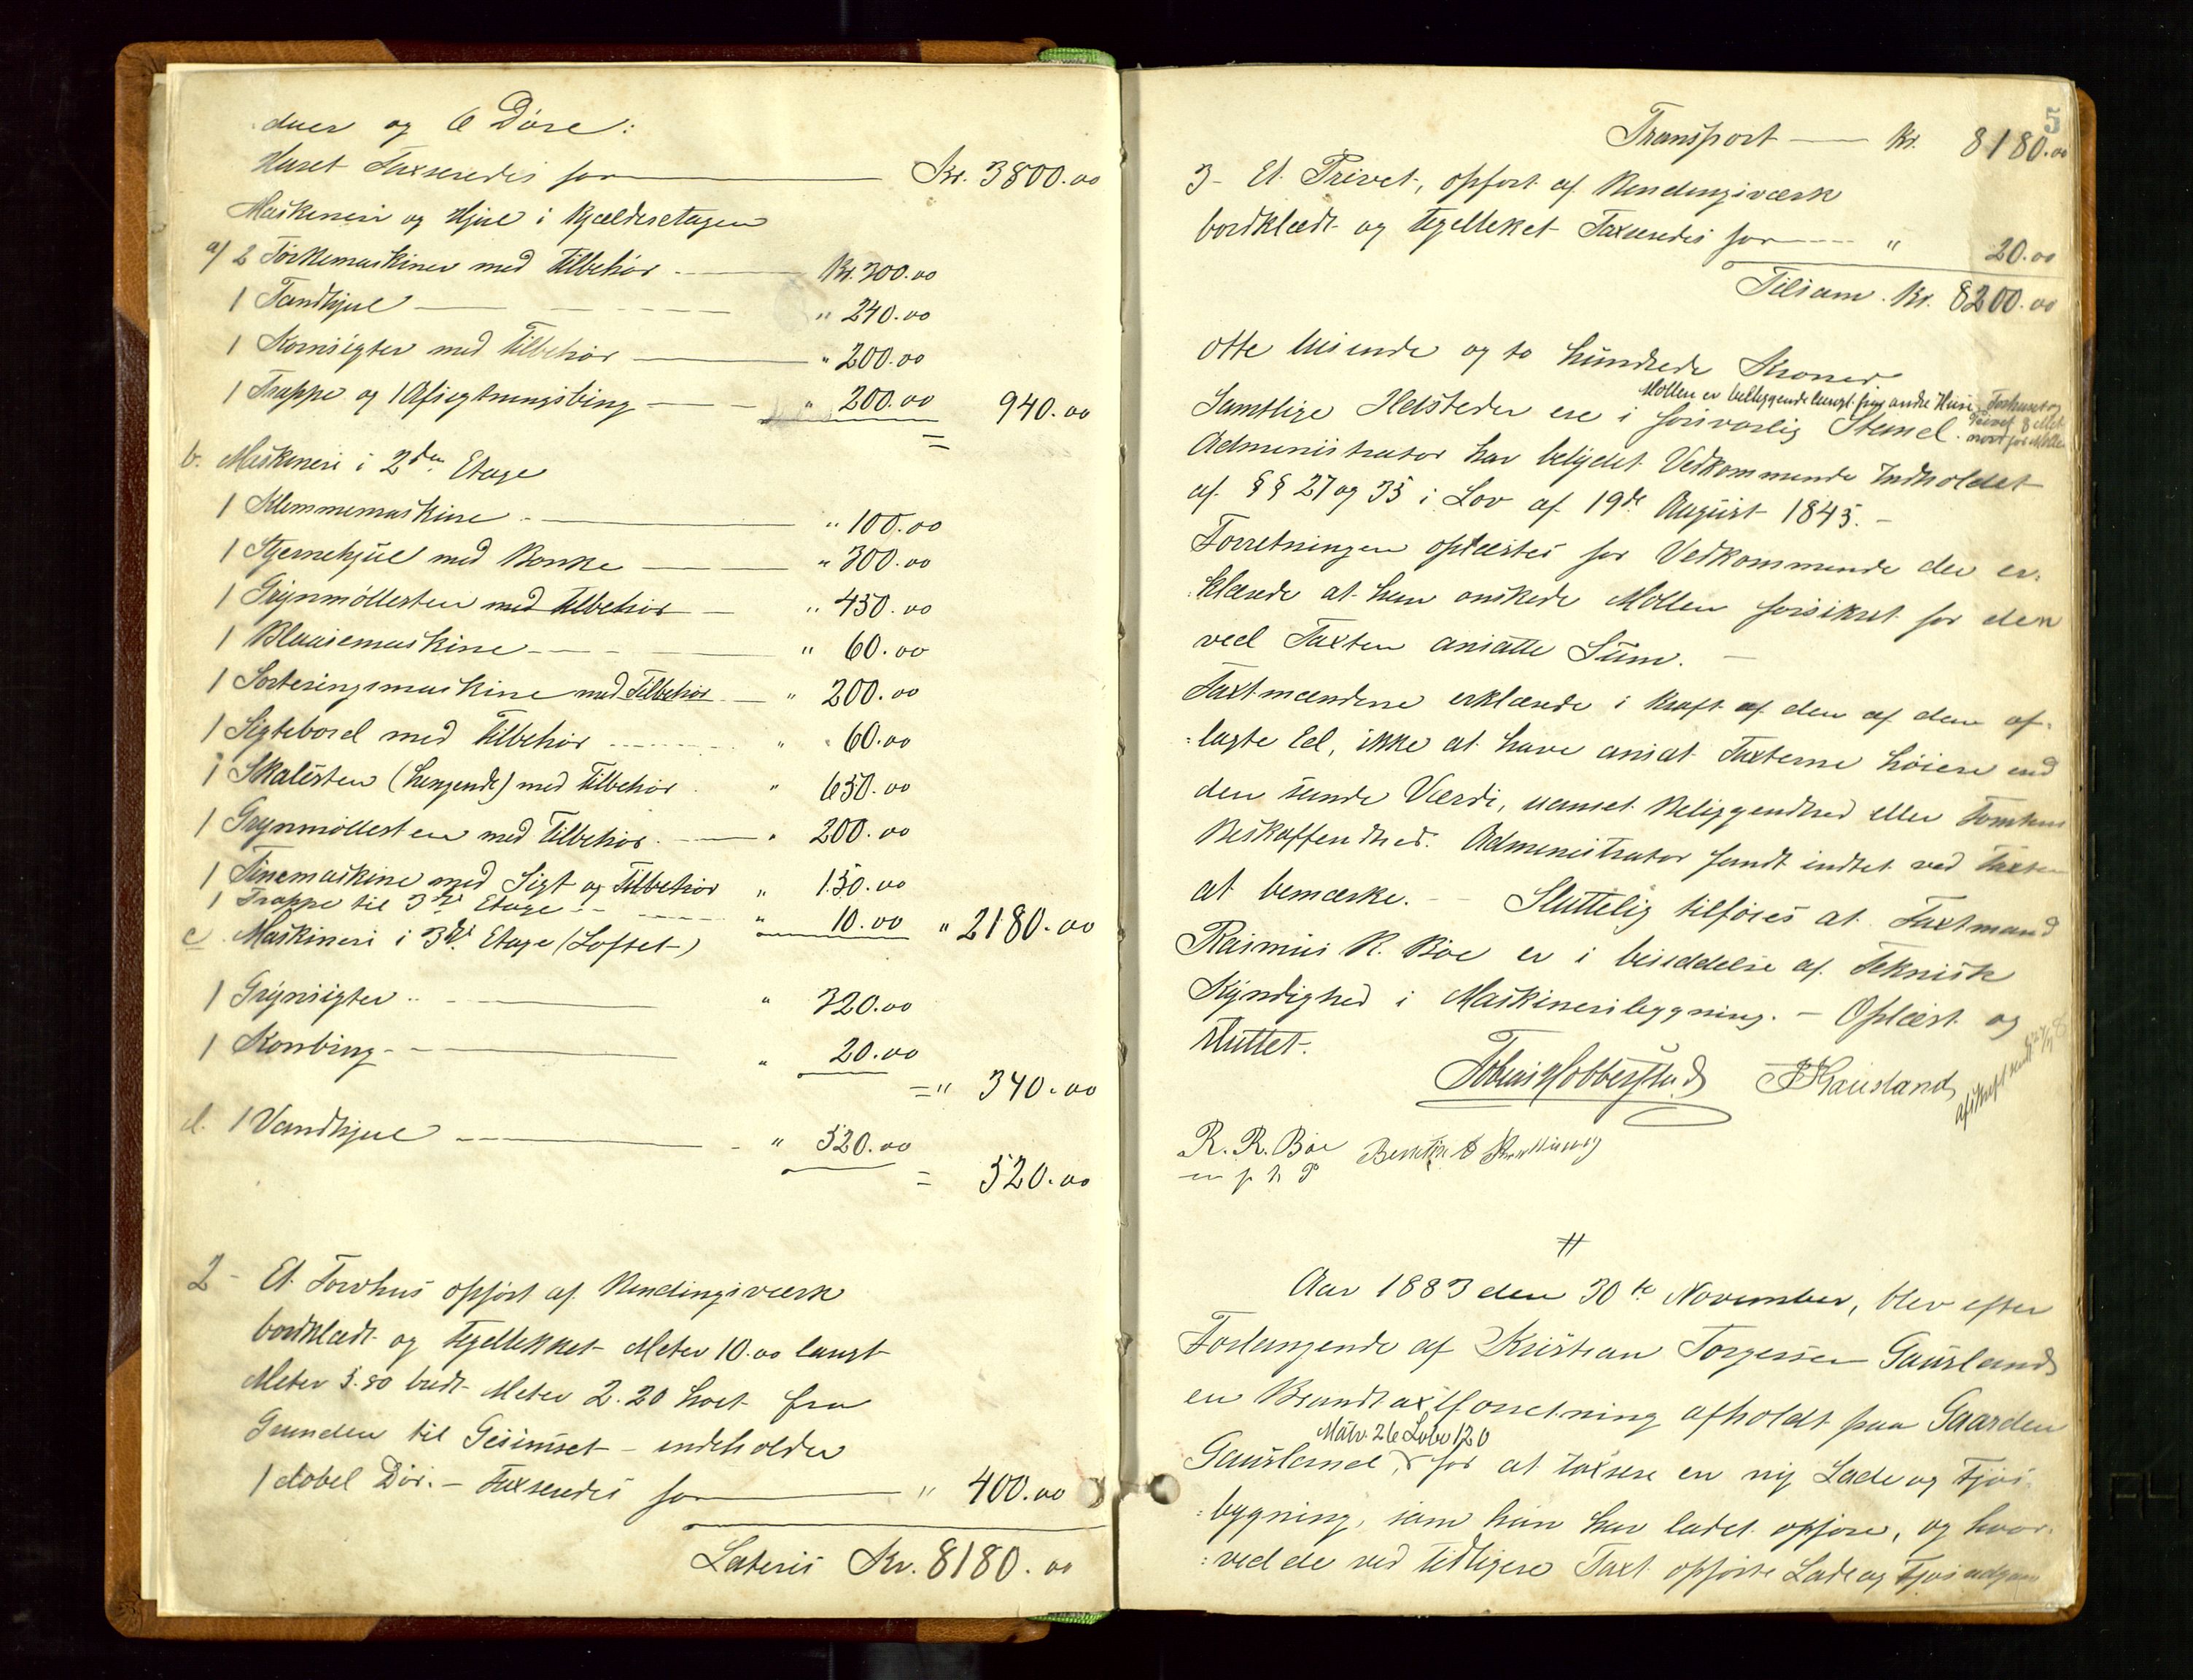 duer og 6 Döre:
Huset Taxseredes for Kr. 3800.00
Maskineri og Hjul i Kjælderetagen
a/ 2 Törkemaskiner med Tilbehör Kr. 300.00
1 Tandhjul " 240.00
1 Kornsigter med Tilbehör " 200.00
1 Trappe og 1 Afsigtningsbing " 200.00 940.00
=
b. Maskineri i 2den Etage
1 Klemmemaskine " 100.00
1 Stjernehjul med Bonke " 300.00
1 Grynmöllesten med Tilbehör " 450.00
1 Blaasemaskine " 60.00
1 Sorteringsmaskine med Tilbehör " 200.00
1 Sigtebord med Tilbehör " 60.00
1 Skalesten (hengende) med Tilbehör " 650.00
1 Grynmöllesten med Tilbehör " 200.00
1 Finemaskine med Sigt og Tilbehör " 150.00
1 Trappe til 3die Etage " 10.00 " 2180.00
c. Maskineri i 3die Etage (Loftet)
1 Grynsigter " 320.00
1 Kornbing " 20.00
= " 340.00
d. 1 Vandhjul " 520.00
= 520.00
2 - Et Torvhus opfört af Bindingsværk
bordklædt og tegeltekket Meter 10.00 langt
Meter 5.80 bredt Meter 2.20 höit fra
Grunden til Gesimset - indeholder
1 dobel Dör. - Taxseredes for " 400.00
Lateris Kr. 8180.00
5
Transport Kr. 8180.00
3 - Et Privet, opfört af Bindingsværk
bordklædt og tegelteket Taxseredes for " 20.00
Tilsam. Kr. 8200.00
otte tusende og to hundrede Kroner
Möllen er beliggende langt fra andre Huse, Torvhuset og
Privet 8 Met.
nord for Möllen
Samtlige Ildsteder ere i forsvarlig Stand.
Administrator har betydet Vedkommende Indholdet
af §§ 27 og 35 i Lov af 19de August 1845. -
Forretningen oplæstes for Vedkommende der er-
:klærede at han önskede Möllen forsikret for den
ved Taxten ansatte Sum. -
Taxtmændene erklærede i Kraft af den af dem af-
:lagte Ed, ikke at have ansat Taxterne höiere end
den sande Værdi, uanset Beliggendhed eller Tomtens
Beskaffendhed. Administrator fandt indtet ved Taxten
at bemærke. - Sluttelig tilföies at Taxtmand
Rasmus R. Böe er i besiddelse af Teknisk
Kyndighed i Maskineribygning. - Oplæst og
sluttet.
Tobias Hobberstad T Gausland
afskrift sendt
R. R. Böe
m f h P
#
Aar 1883 den 30te November, blev efter
Forlangende af Kristian Torgersen Gausland
en Brandtaxtforretning afholdt paa Gaarden
Matr. 26 Löbe 120
Gausland, for at taxsere en ny Lade og Fjös-
:bygning, som han har ladet opföre, og hvor-
:ved de ved tidligere Taxt opförte Lade og Fjös udgaar